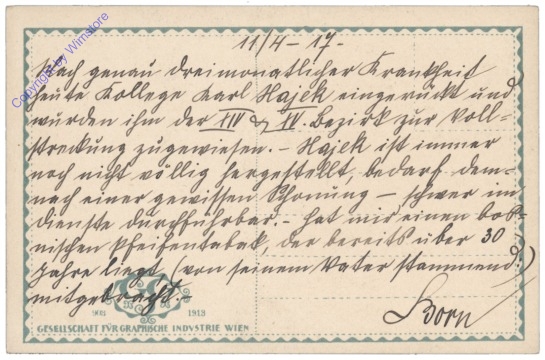 Copyright by Wimstore
11/4 - 17.-
Nach genau dreimonatlicher Krankheit
heute Kollege Karl Hajek eingerückt und
wurden ihm der XIV & XV. Bezirk zur Voll-
streckung zugewiesen. - Hajek ist immer
noch nicht völlig hergestellt, bedarf dem-
nach einer gewissen Schonung - schwer im
Dienste durchführbar. - hat mir einen bos-
nischen Pfeifentabak, der bereits über 30
Jahre liegt (von seinem Vater stammend.)
mitgebracht.
Born
1913
GESELLSCHAFT FÜR GRAPHISCHE INDVSTRIE WIEN